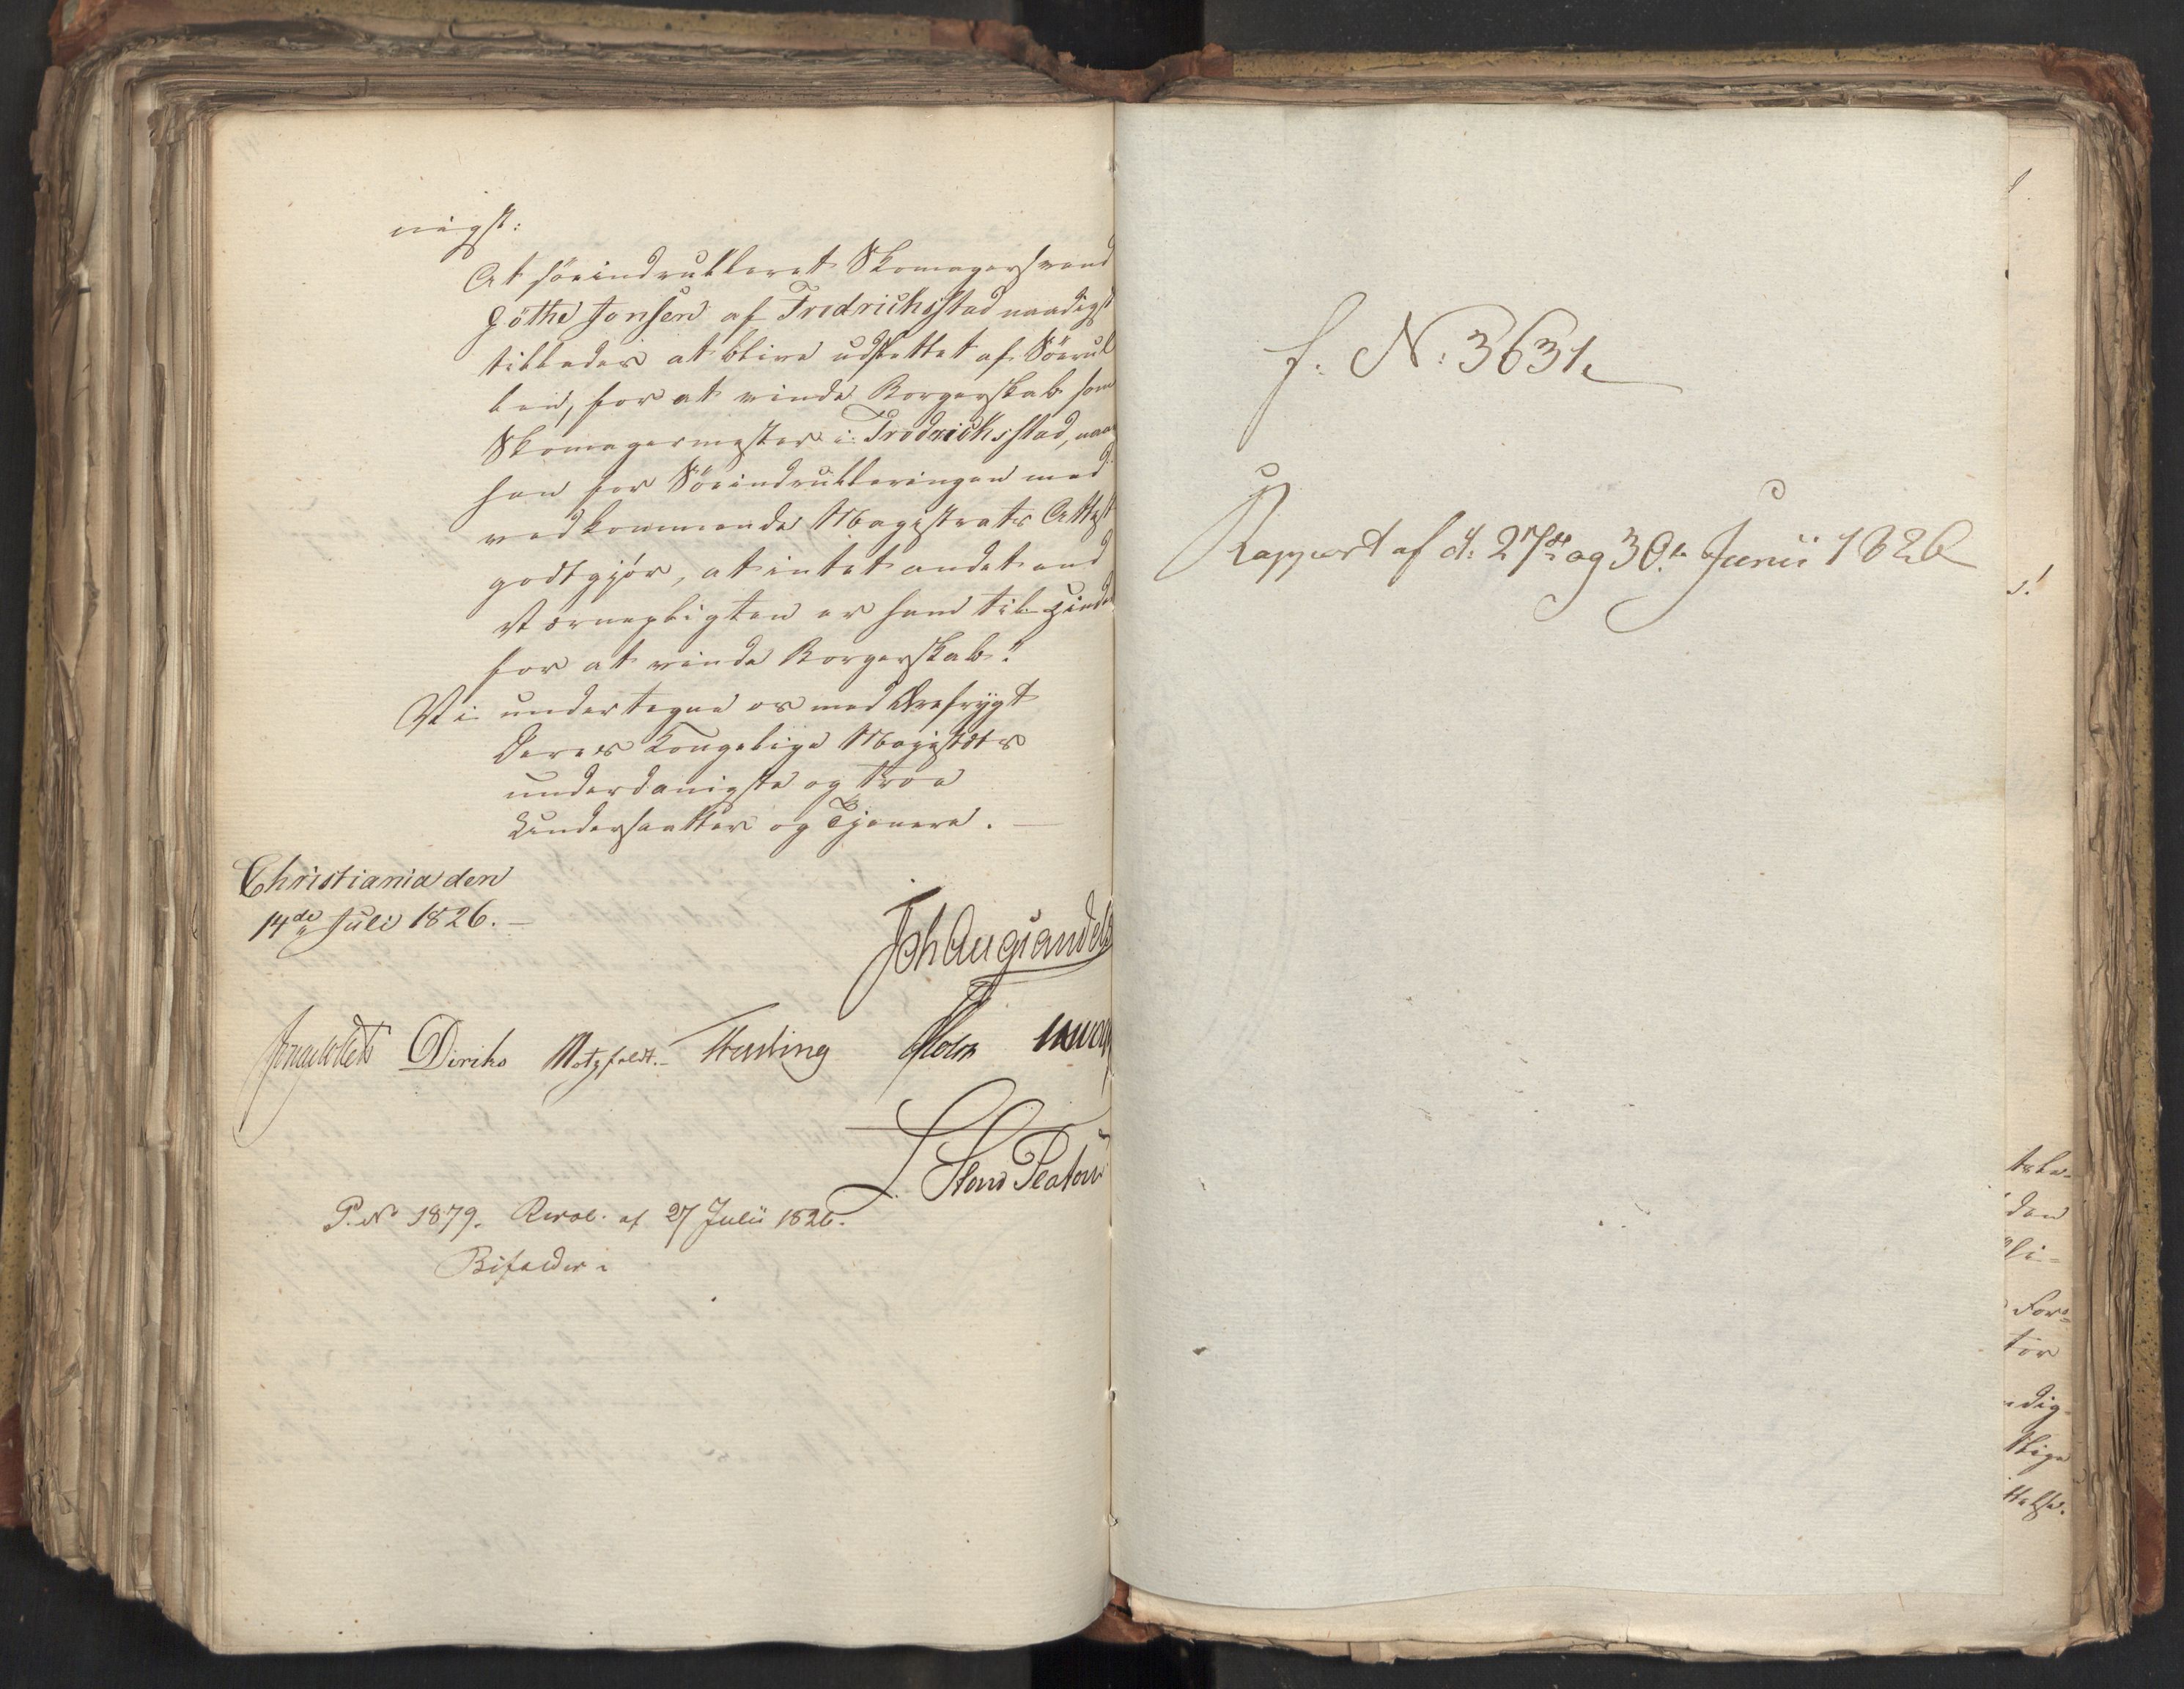 nigst:
At söeindrulleret Skomagersvend
Göthe Jonsen af Fredrichsstad naadigst
tillades at blive udslettet af Söerul
len, for at vinde Borgerskab som
Skomagermester i Fredrichsstad, naar
han for Söeindrulleringen med
vedkommende Magistrats Attest
godtgjør, at intet andet end
Værnepligten er ham til Hinder
for at vinde Borgerskab.
Vi undertegne os med Ærefrygt
Deres Kongelige Majestæts
underdanigste og troe
Undersaatter og Tjenere. —
Christiania den
14de Juli 1826. —
Joh Aug Sandels
Diriks Motzfeldt. Fasting Holst
P. No 1879. Resol. af 27 Julii 1826.
Bifaldes
f. N: 3631
Rapport af d: 27de og 30te Junii 1826
tor